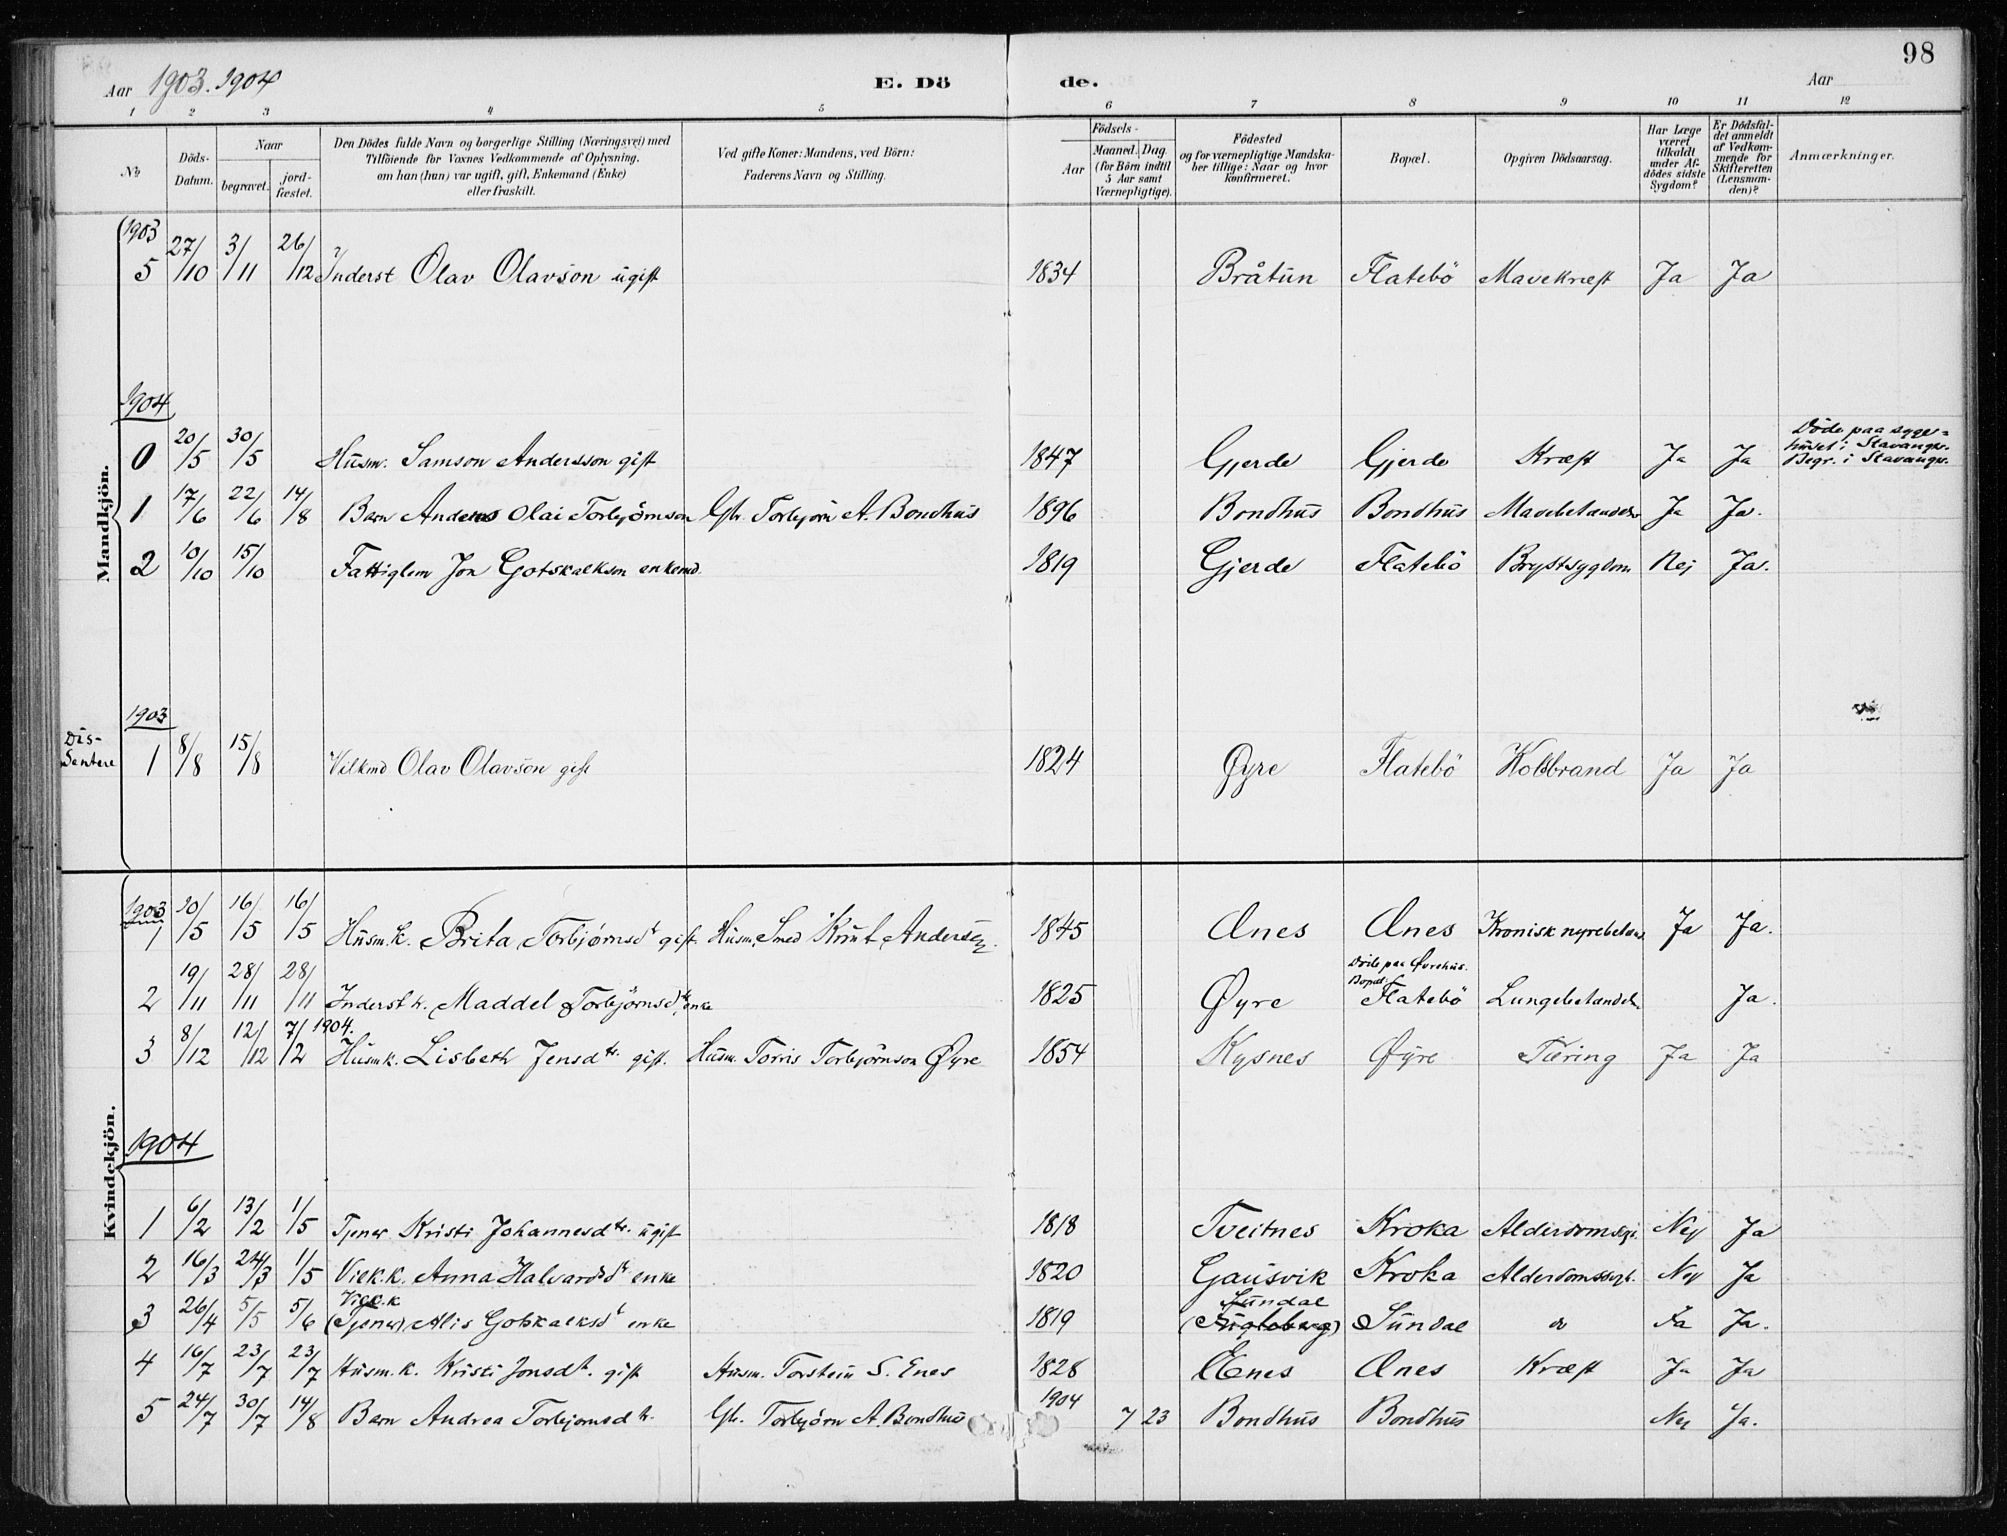 98
Aar 1903. 1904 E. Dö de. Aar
1 2 3 4 5 6 7 8 9 10 11 12
No
Döds-Datum.
Naar
begravet. jord-fæstet.
Den Dödes fulde Navn og borgerlige Stilling (Næringsvei) med
Tilföiende for Voxnes Vedkommende af Oplysning,
om han (hun) var ugift, gift, Enkemand (Enke)
eller fraskilt.
Ved gifte Koner: Mandens, ved Börn:
Faderens Navn og Stilling.
Födsels-
Aar Maaned. Dag.
(for Börn indtil
5 Aar samt
Værnepligtige).
Födested
og for værnepligtige Mandska-
ber tillige: Naar og hvor
konfirmeret.
Bopæl.
Opgiven Dödsaarsag.
Har Læge
været
tilkaldt
under Af-
dödes sidste
Sygdom?
Er Dödsfal-
det anmeldt
af Vedkom-
mende for
Skifteretten
(Lensman-
den)?
Anmærkninger.
Mandkjön.
1903
5 27/10 3/11 26/12 Inderst Olav Olavson ugift 1834 Bråtun Flatebö Mavekræft Ja Ja
1904
0 20/5 30/5 Husm. Samson Andersson gift 1847 Gjerde Gjerde Kræft Ja Ja Döde paa syge-
huset i Stavanger.
Begr. i Stavanger.
1 17/6 22/6 14/8 Barn Anders Olai Torbjörnson Gbr. Torbjörn A. Bondhus 1896 Bondhus Bondhus Ja Ja.
2 10/10 15/10 Fattiglem Jon Gotskalkson enkemd. 1819 Gjerde Flatebö Brystsygdom Nej Ja.
1903
Dis-
sentere 1 8/8 15/8 Vilkmd Olav Olavson gift 1824 Øyre Flatebö Koldbrand Ja Ja
Kvindekjön.
1903
1 10/5 16/5 16/5 Husm.k. Brita Torbjørnsdt gift. Husm. Smed Knut Andersen. 1845 Ænes Ænes Kronisk nyrebetænd. Ja Ja.
2 19/11 28/11 28/11 Inderst k. Maddel Torbjørnsdt. enke 1825 Øyre Döde paa Øvrehus.
Bopæl Flatebö Lungebetændelse Ja.
3 8/12 12/12 7/2 1904. Husm.k. Lisbeth Jensdtr. gift. Husm. Torris Torbjørnson Øyre 1854 Kysnes Øyre Tæring Ja Ja
1904
1 6/2 13/2 1/5 Tjener Kristi Johannesdtr. ugift 1818 Tveitnes Kroka Alderdomssgd. Nej Ja
2 16/3 24/3 1/5 Vilk.k. Anna Halvardsdt enke 1820 Gausvik Kroka Alderdomssygd. Nej Ja
3 26/4 5/5 5/6 Vilk.k (Tjener) Alis Gotskalksdt enke 1819 Sundal (Fugleberg) Sundal do Ja Ja.
4 16/7 23/7 23/7 Husm.k. Kristi Jonsdt. gift Husm. Torstein S. Enes 1828 Ænes Ænes Kræft Ja Ja
5 24/7 30/7 14/8 Barn Andrea Torbjørnsdtr. Gbr. Torbjörn A. Bondhus 1904 7 23 Bondhus Bondhus Nej Ja.